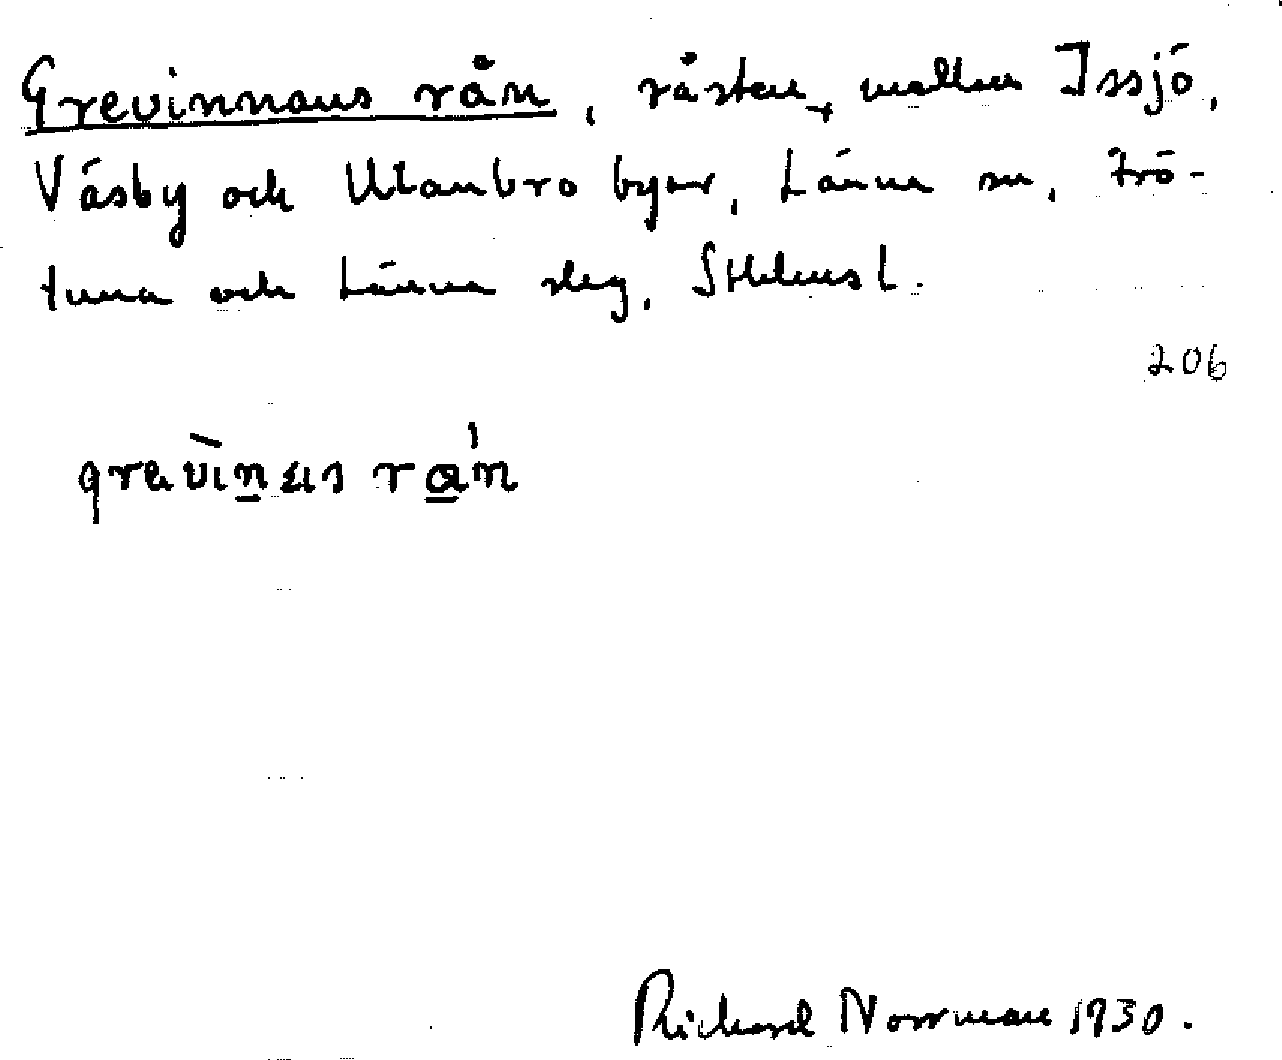 Grevinnans rån, råsten, mellan Issjö,
Väsby och Utanbro byar, Länna sn, Frö-
tuna och Länna slg, Sthlms l.
206
grevìnens rån
Richard Norrman 1930.